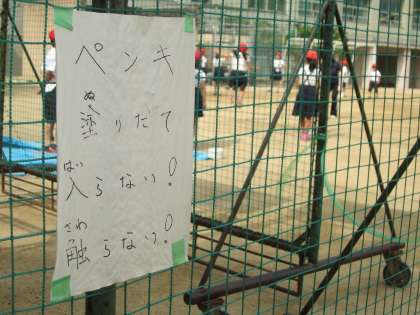 ペンキ
塗りたて
入らない!
触らない!
ぬ
はい
さわ